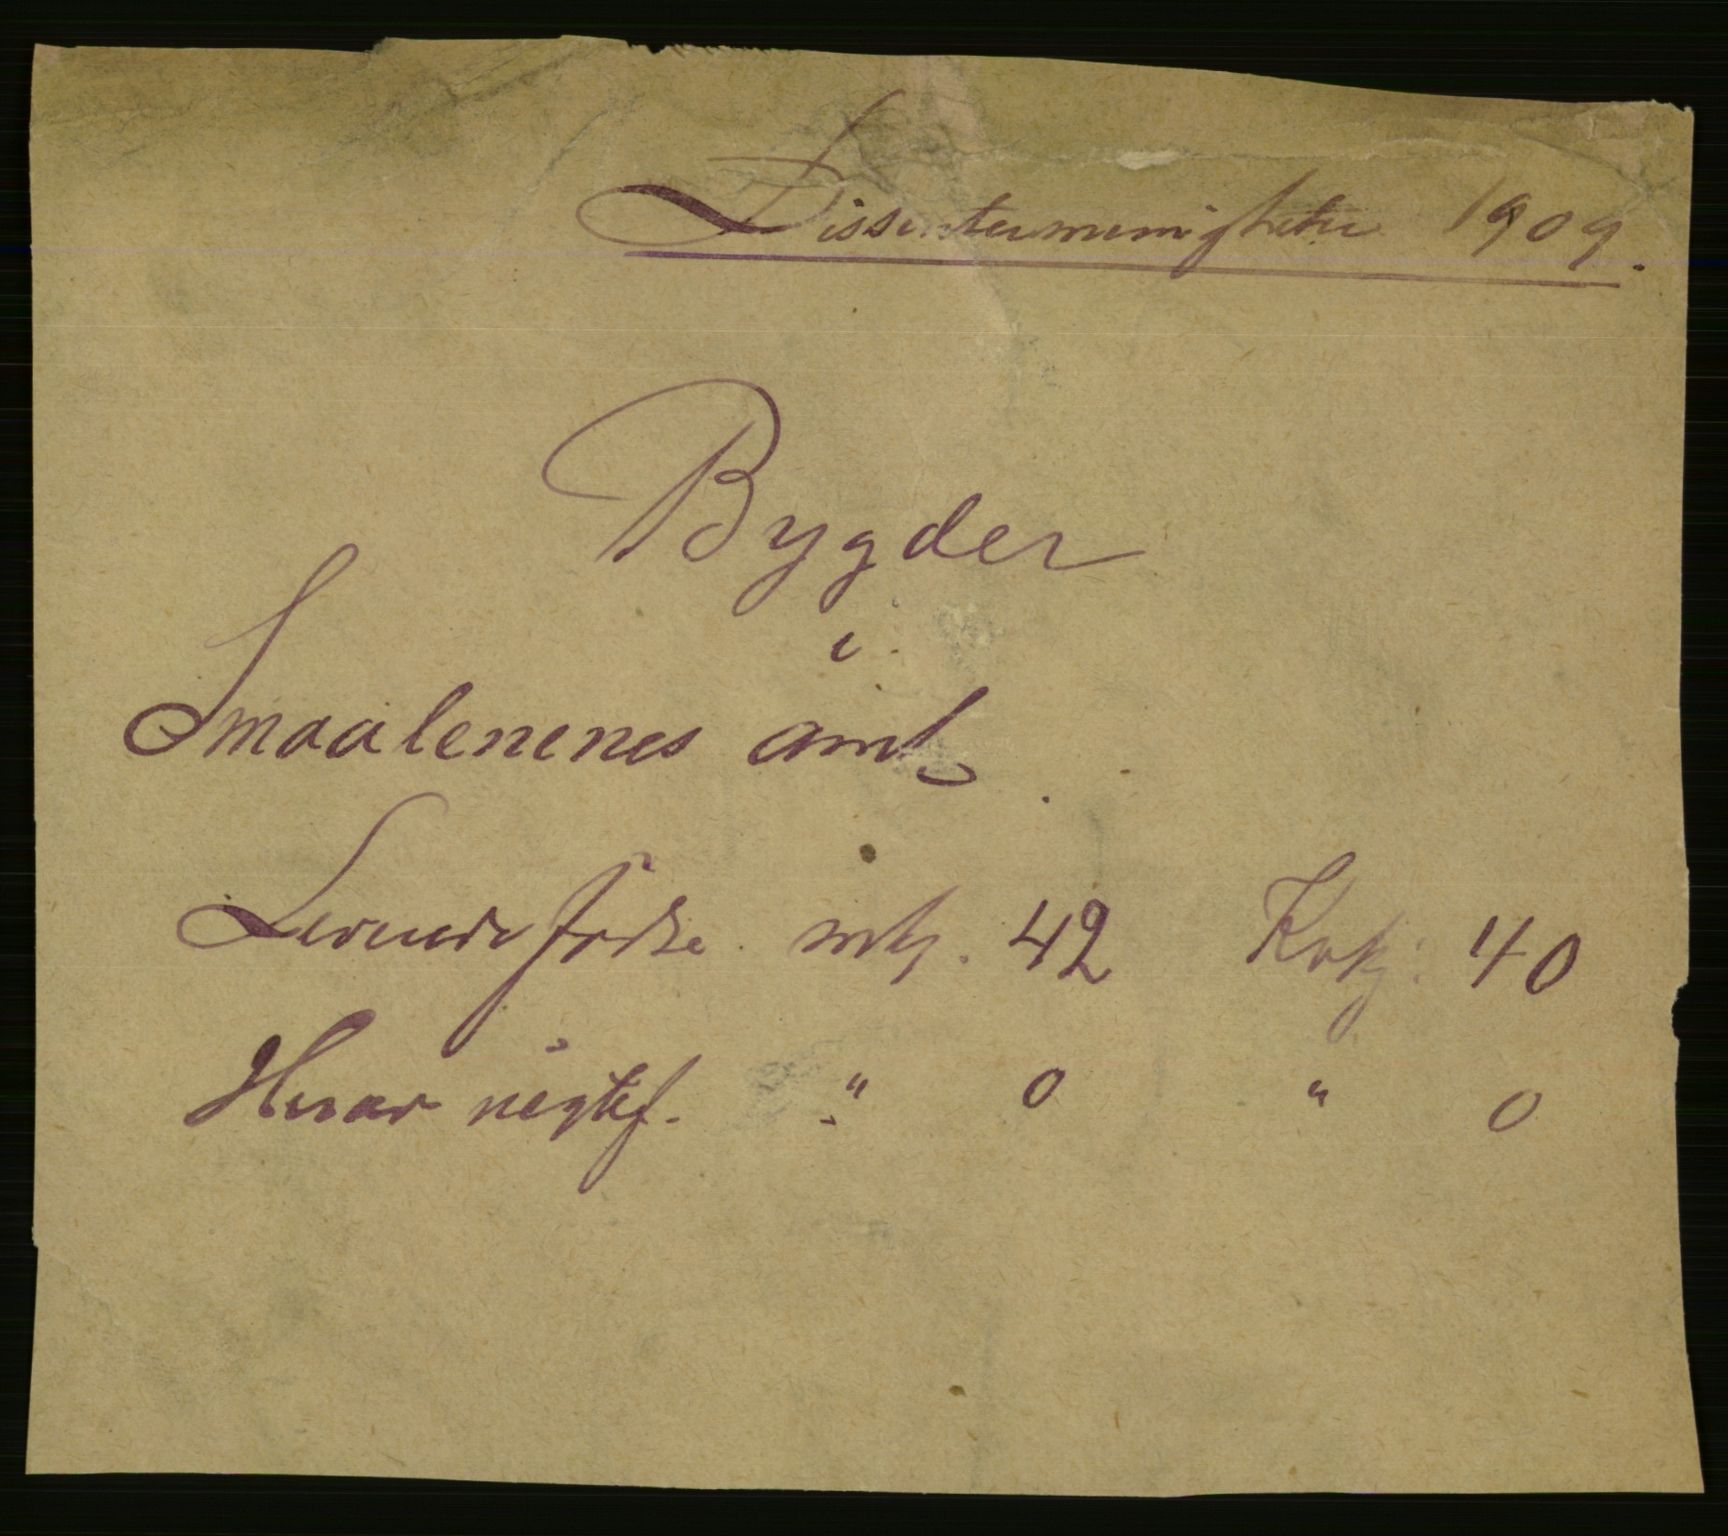 Dissentermenigheter 1909.
Bygder
i
Smaalenenes amt.
Levende fødte mkj. 42 Kvkj. 40
Herav uegtef. " 0 " 0